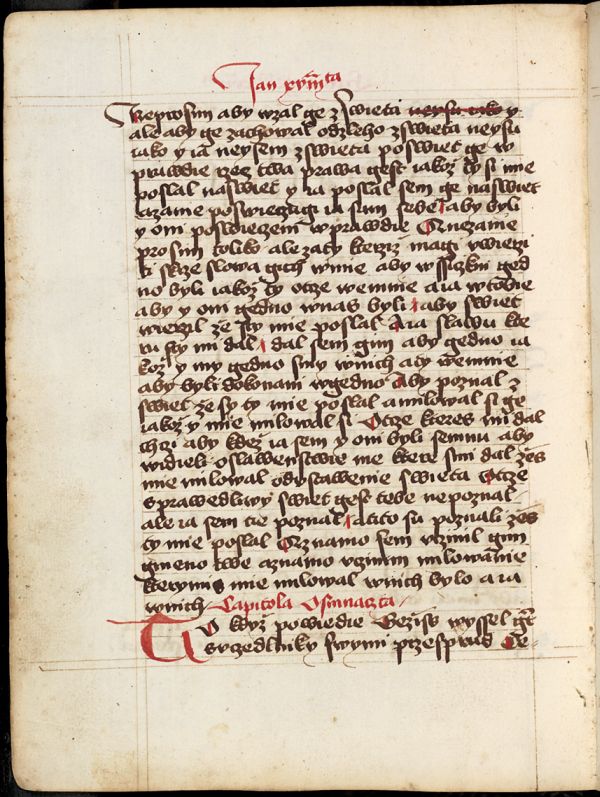 Jan xviiita
Neprosim aby wzal ge z swieta neysu iako y
ale aby ge zachowal odzleho zswieta neysu
iako y ia neysem zswieta poswiet ge w
prawdie rzecz twa prawa gest iakoz ty si mie
poslal naswiet y ia poslal sem ge naswiet
azanie poswieczugi ia sam sebe aby byli
y oni poswieczeni wprawdie Arnezanie
prosim toliko ale zaty kteriz magi vwierzi
ti skrze slowa gich wmie aby wssiczkni ged
no byli iakoz ty otcze wemnie a ia wtobie
aby y oni gedno wnas byli aby swiet
wierzil ze sy ty mie poslal A ia slawu kte
ru sy mi dal dal sem gim aby gedno ia
koz y my gedno smy wnich aty wemnie
aby byli dokonani wgedno Aby poznal
swiet ze sy ty mie poslal amilowal si ge
iakoz y mie milowal si Otcze kteres mi dal
chczi aby kdez ia sem y oni byli semnu aby
widieli oslawenstwie me ktere smi dal zes
mie milowal odustawenie swieta Otcze
sprawedliwy swiet gest tebe nepoznal
ale ia sem tie poznal atito su poznali zes
ty mie poslal Arznamo sem vczinil gim
gmeno twe aznamo vczinim milowanie
kterymis mie milowal wnich bylo a ia
wnich Capitola Osmnaczta
To kdyz powiedie Geziss wyssel gest
svczedlniky swymi przesprud Ce-